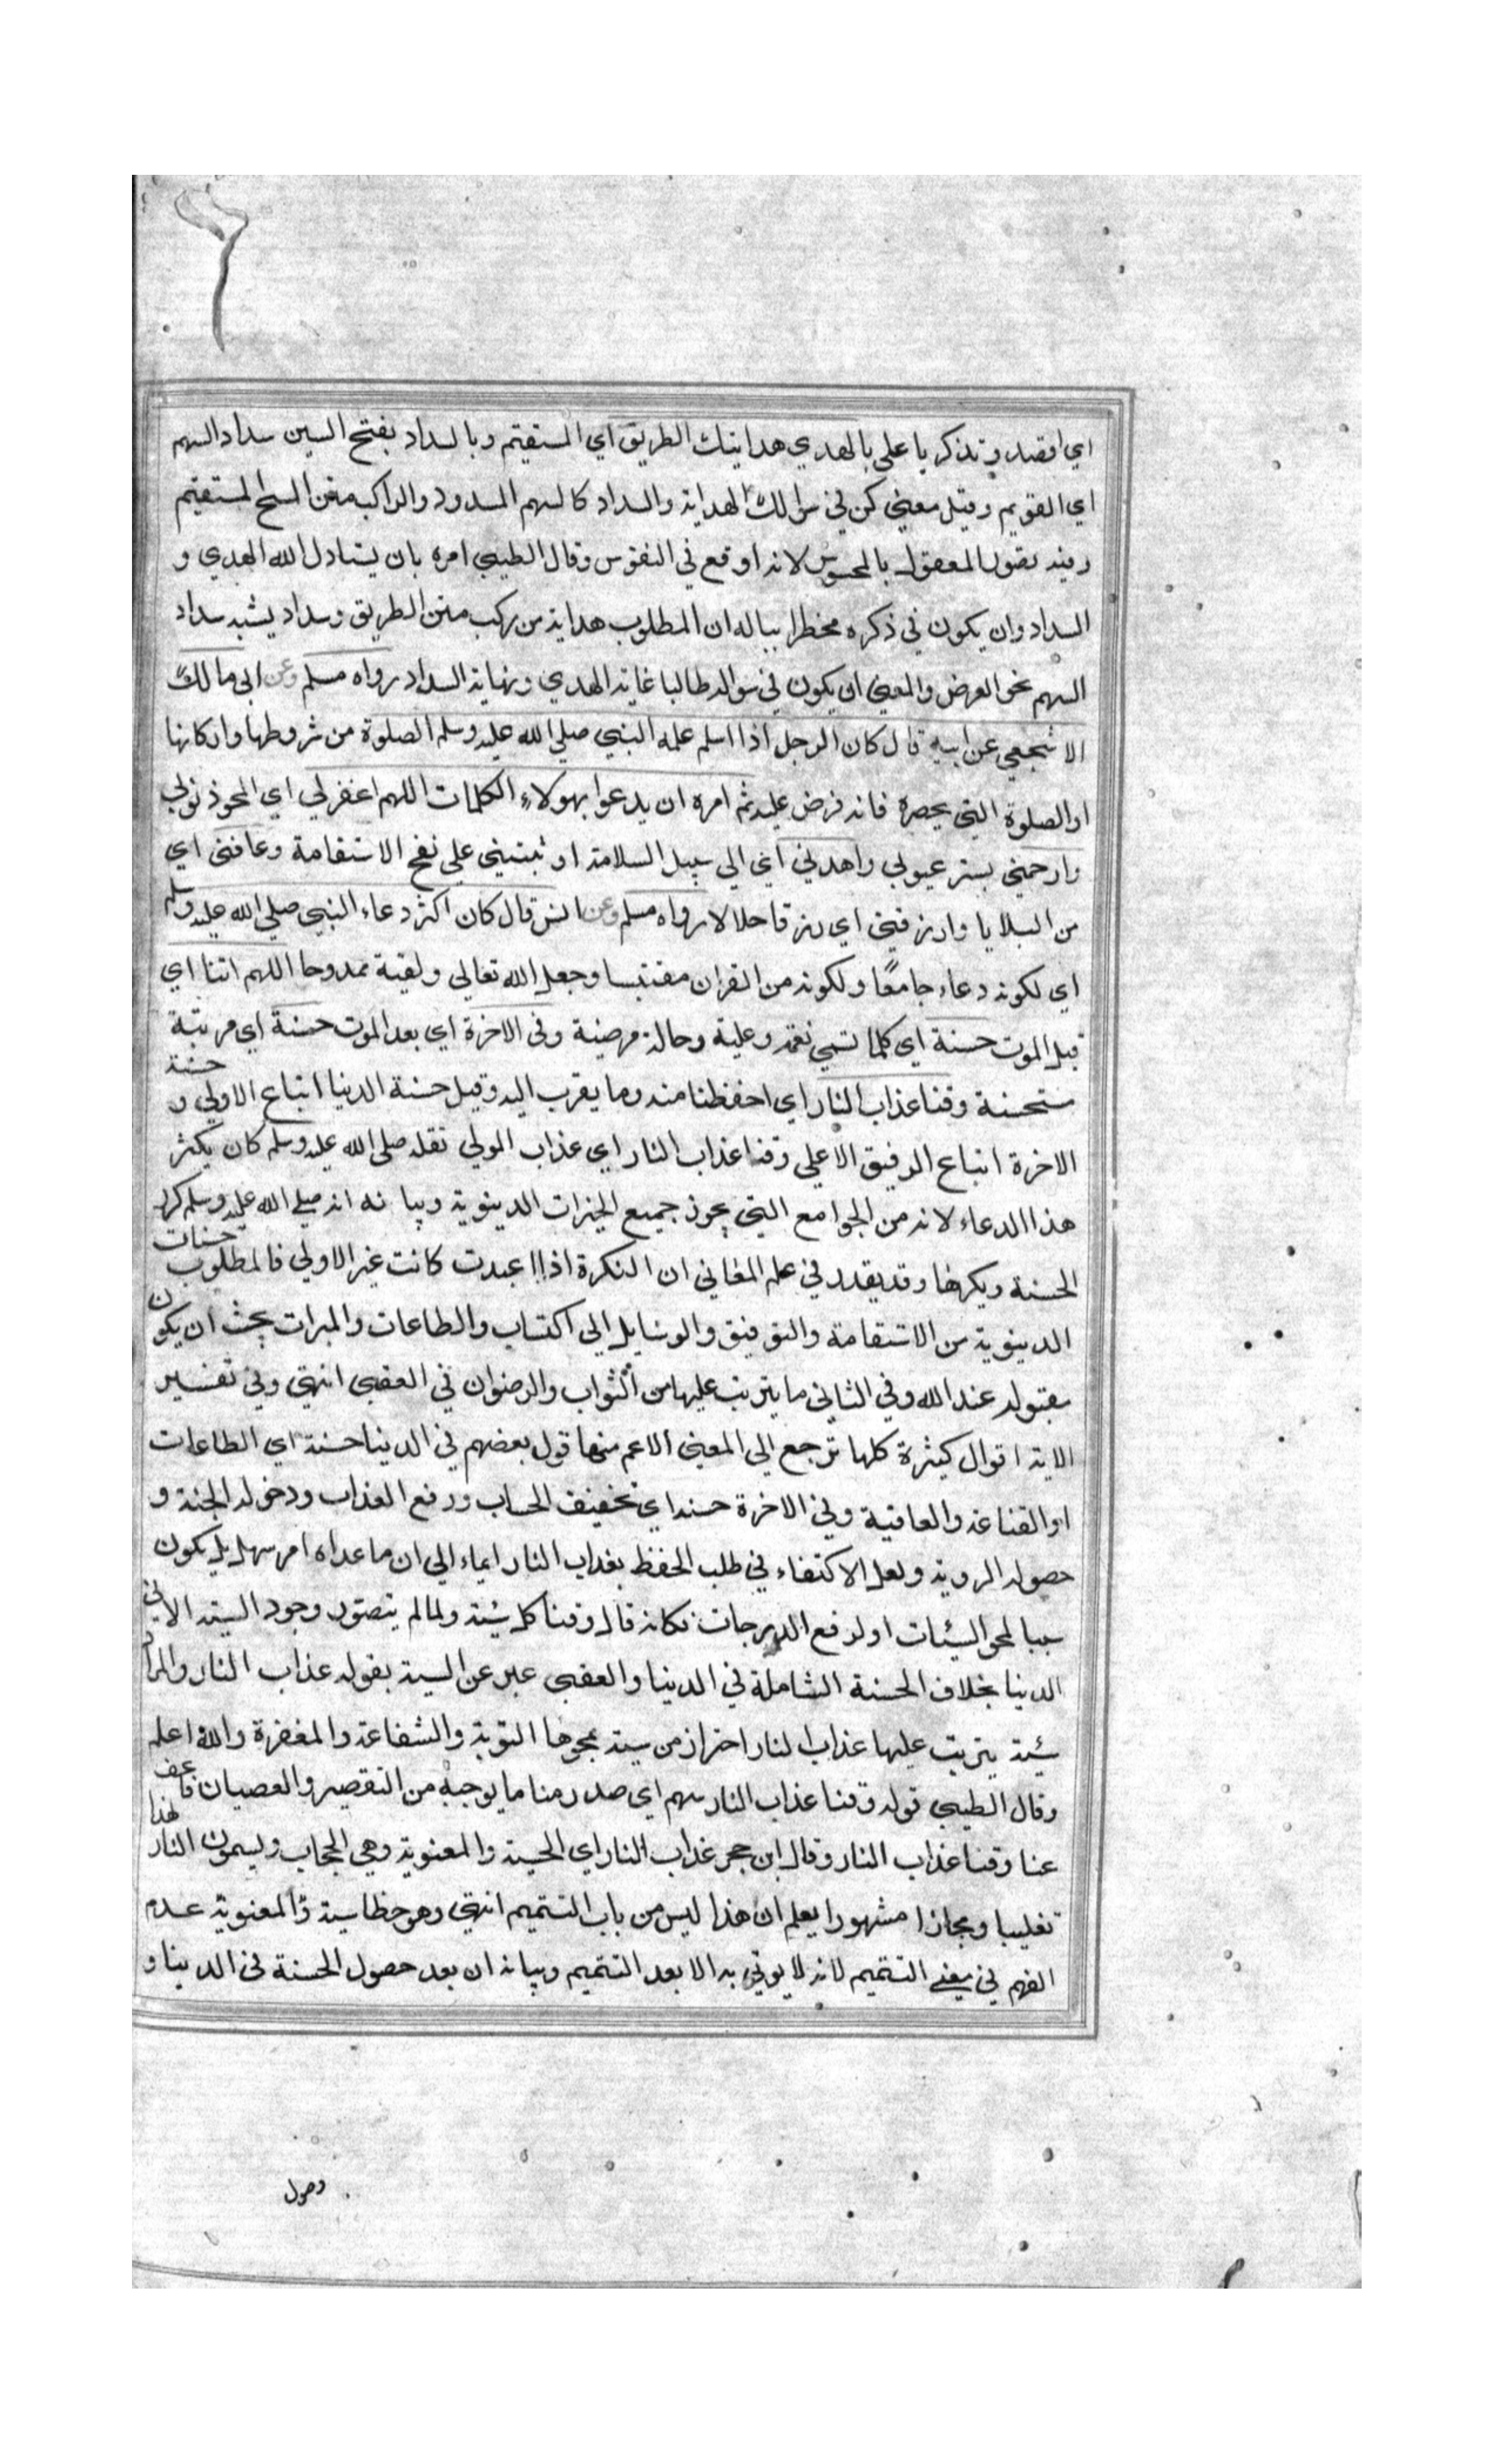 اي اقصد وتذكر يا علي بالهدي هدايتك الطريق اي المستقيم وبالسداد بفتح السين سداد السهم
اي القويم وقيل معني كن في سوالك الهداية والسداد كالسهم المسدود والراكب متن المستقيم
وفيه تصول المعقول بالمحسوس لانه اوقع في النفوس وقال الطيبي امره بان يسادل الله الهدي و
السداد وان يكون في ذكره مخطرا بباله ان المطلوب هداية من ركب متن الطريق وسداد يشبه سداد
السهم نحو الغرض والمعني ان يكون في سواله طالبا غاية الهدي ونهاية السداد رواه مسلم وعن ابي مالك
الاشجعي عن ابيه قال كان الرجل اذا اسلم علمه النبي صلي الله عليه وسلم الصلوة من شروطها واركانها
او الصلوة التي يحصره فانه فرض عليه ثم امره ان يدعوا بهولاء الكلمات اللهم اغفرلي اي المحو ذنوبي
وارحمني بستر عيوبي واهدني اي الي سبيل السلامة او ثبتني علي نهج الاستقامة وعافني اي
من البلايا وارزقني اي رزقا حلالا رواه مسلم وعن انس قال كان اكثر دعاء النبي صلي الله عليه وسلم
اي لكونه دعاء جامعا ولكونه من القران مقتبسا وجعل الله تعالي ممدوحا اللهم اتنا اي
قبل الموت حسنة اي كلما تسمي نعمة وعلية وحالة مرضية وفي الاخرة اي بعد الموت حسنة اي مرتبة
مستحسنة وقنا عذاب النار اي احفظنا منه وما يقرب اليه وقيل حسنة الدنيا اتباع الاولي و حسنة
الاخرة اتباع الرفيق الاعلي وقنا عذاب النار اي عذاب المولي نقله صلي الله عليه وسلم كان يكثر
هذا الدعاء لانه من الجوامع التي يحوز جميع الخيرات الدينوية وبيانه انه صلي الله عليه وسلم كرر
الحسنة ويكرها وقد يقدر في علم المعاني ان النكرة اذا اعيدت كانت غير الاولي فالمطلوب حسنات
الدينوية من الاستقامة والتوفيق والوسايل الي اكتساب والطاعات والمبرات بحيث ان يكون
مقبوله عند الله وفي الثاني ما يترتب عليها من الثواب والرضوان في العقبي انتهي وفي تفسير
الاية اقوال كثيرة كلها ترجع الي المعني الاعم منها قول بعضهم في الدينا حسنة اي الطاعات
او القناعة والعافية وفي الاخرة حسنة اي تخفيف الحساب ورفع العذاب ودخول الجنة و
حصول الروية ولعل الاكتفاء في طلب الحفظ بعذاب النار ايماء الي ان ماعداه امر سهل بل يكون
سببا لمحو السيئات او لرفع الدرجات فكانه قال وقنا كل سيئة ولما لم يتصور وجود السية الا في
الدينا بخلاف الحسنة الشاملة في الدينا والعقبي عبر عن السية بقوله عذاب النار والمراد
سيئة يترتب عليها عذاب النار احتراز من سية يمحوها التوبة والشفاعة والمغفرة والله اعلم
وقال الطيبي قوله وقنا عذاب النار تتميم اي صدر منا ما يوجبه من التقصير والعصيان فاعف
عنا وقنا عذاب النار وقال ابن حجر عذاب النار اي الحسية والمعنوية وهي الحجاب ويسمون النار هذا
تغليبا ومجازا مشهورا يعلم ان هذا ليس من باب التتميم انتهي وهو خطا والمعنوية عدم
الفهم في معني التتميم لانه لا يوتي به الا بعد التتميم وبيانه ان بعد حصول الحسنة في الدينا و
وصول